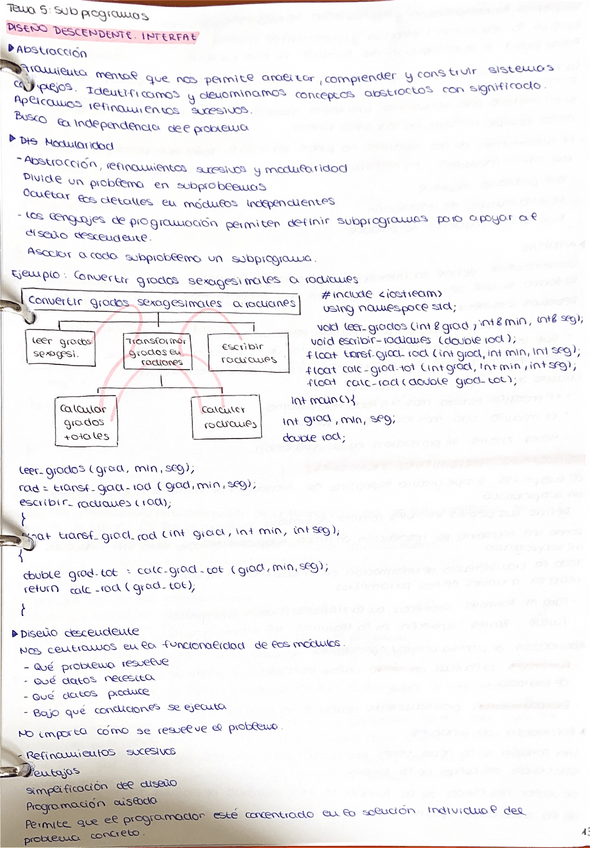 Tema 5: Subprogramas
DISEÑO DESCENDENTE. INTERFAE
▶Abstracción
mental que nos permite analizar, comprender y construir sistemas
complejos. Identificamos y denominamos conceptos abstractos con significado.
Aplicamos refinamientos sucesivos.
Busco la independencia del problema
▶DIS Modularidad
-Abstracción, refinamientos sucesivos y modularidad
Divide un problema en subproblemas
Ocultar los detalles en módulos independientes
- Los lenguajes de programación permiten definir subprogramas para apoyar al
diseño descendente.
Asociar a cada subproblema un subprograma.
Ejemplo: Convertir grados sexagesimales a radianes
Convertir grados sexagesimales a radianes
leer grados
sexagesi.
Transformar
grados en
radianes
escribir
radianes
calcular
grados
totales
calcular
radianes
#include <iostream>
using namespace std;
void leer-grados (int & grad, int & min, int & seg);
void escribir-radianes (double rad);
float transf-grad-rad (int grad, int min, int seg);
float calc-grad-tot (int grad, int min, int seg);
float calc-rad (double grad-tot);
int main(){
int grad, min, seg;
double rad;
leer-grados (grad, min, seg);
rad = transf-grad-rad (grad, min, seg);
escribir_radianes (rad);
}
float transf_grad_rad (int grad, int min, int seg);
{
double grad-tot = calc-grad-tot (grad, min, seg);
return calc-rad (grad-tot);
}
▶Diseño descendente
Nos centramos en la funcionalidad de los módulos.
- Qué problema resuelve
- Qué datos necesita
- Qué datos produce
- Bajo qué condiciones se ejecuta
No importa cómo se resuelve el problema.
- Refinamientos sucesivos
Ventajas
Simplificación del diseño
Programación aislada
Permite que el programador esté concentrado en la solución individual del
problema concreto.